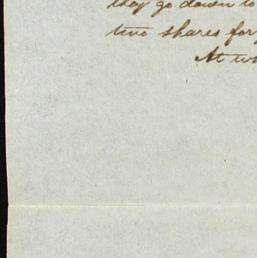 they go down to
two shares for
At tw